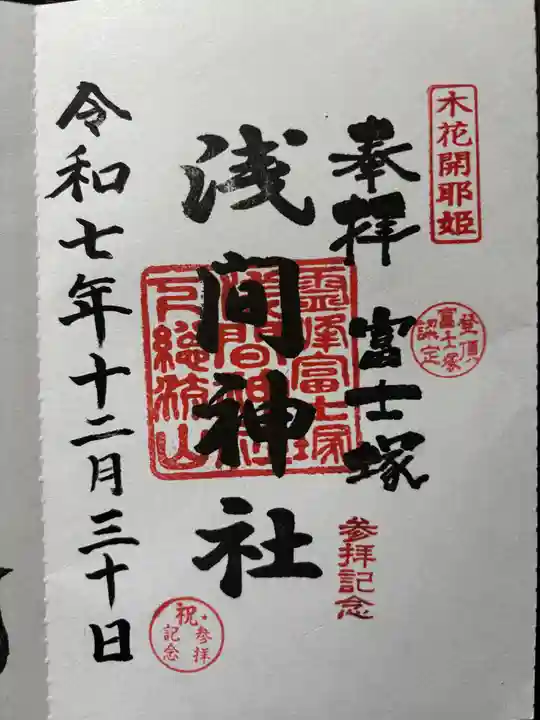 木花開耶姫
登頂
富士塚
認定
奉拝 富士塚
参拝記念
浅間神社
霊峰富士塚
浅間神社
下総流山
祝
参拝
記念
令和七年十二月三十日